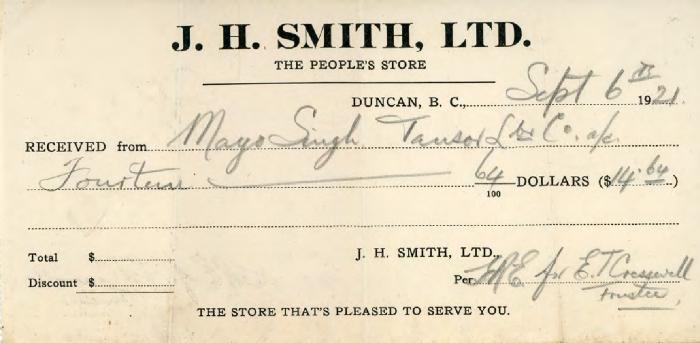 J. H. SMITH, LTD.
THE PEOPLE'S STORE
DUNCAN, B. C., Sept 6th 1921.
RECEIVED from Mayo Singh Tansor Lbr Co. a/c
Fourteen 64/100 DOLLARS ($14.64)
Total $
J. H. SMITH, LTD.,
Discount $
Per for E. T. Cresswell
Trustee,
THE STORE THAT'S PLEASED TO SERVE YOU.